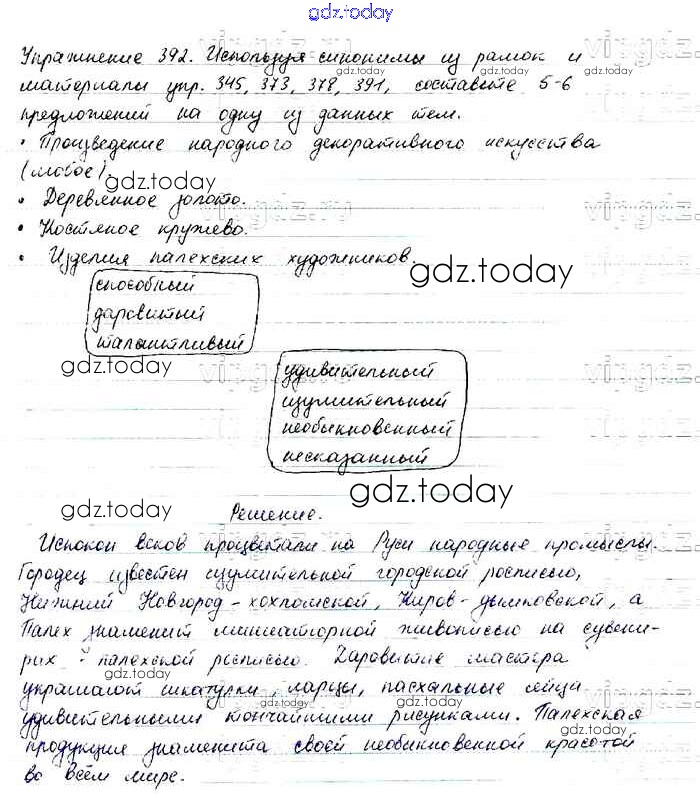 gdz.today
Упражнение 392. Используя синонимы из рамок и
материалы упр. 345, 373, 378, 391, составьте 5-6
предложений на одну из данных тем.
• Произведение народного декоративного искусства
(любое).
• Деревянное золото.
• Костяное кружево.
• Изделия палехских художников.
способный
даровитый
талантливый
удивительный
изумительный
необыкновенный
несказанный
Решение.
Испокон веков процветали на Руси народные промыслы.
Городец известен изумительной городской росписью,
Нижний Новгород - хохломской, Киров - дымковской, а
Палех знаменит миниатюрной живописью на сувени-
рах - палехской росписью. Даровитые мастера
украшают шкатулки, ларцы, пасхальные яйца
удивительными тончайшими рисунками. Палехская
продукция знаменита своей необыкновенной красотой
во всём мире.